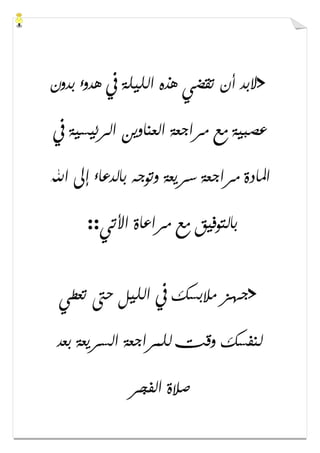 >لابد أن تقضي هذه الليلة في هدوء بدون
عصبية مع مراجعة العناوين الرئيسية في
المادة مراجعة سريعة وتوجه بالدعاء إلى الله
بالتوفيق مع مراعاة الأتي::
>جهز ملابسك في الليل حتى تعطي
لنفسك وقت للمراجعة السريعة بعد
صلاة الفجر